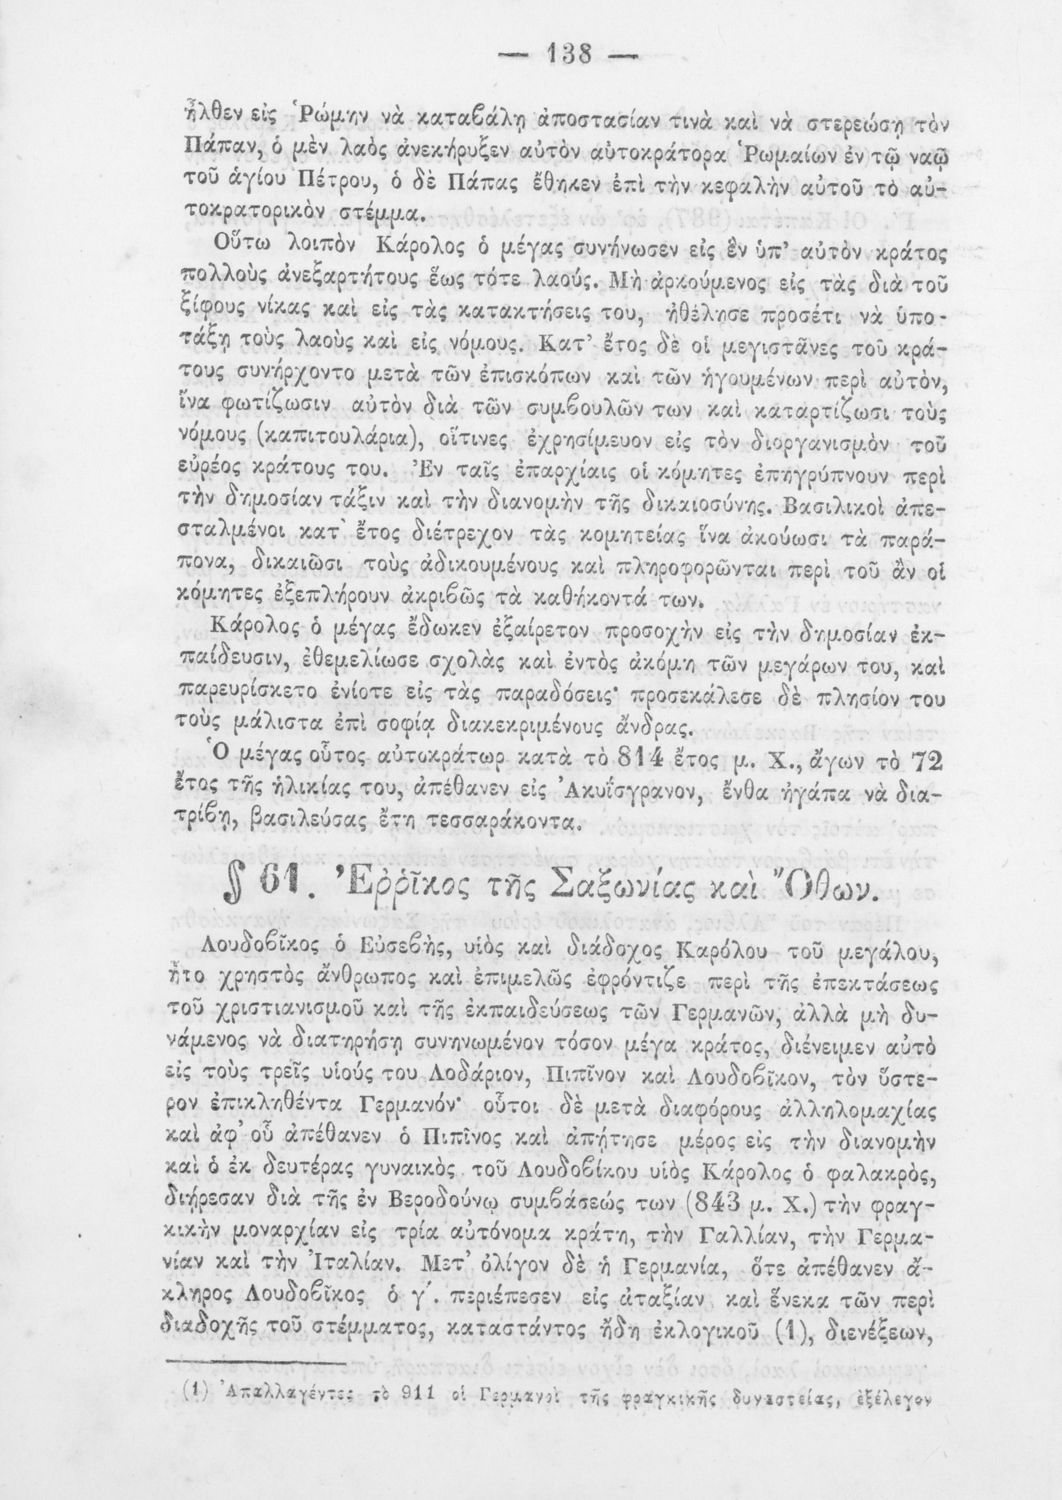 — 138 —
ἦλθεν εἰς Ῥώμην νὰ καταβάλῃ ἀποστασίαν τινὰ καὶ νὰ στερεώσῃ τὸν
Πάπαν, ὁ μὲν λαὸς ἀνεκήρυξεν αὐτὸν αὐτοκράτορα Ῥωμαίων ἐν τῷ ναῷ
τοῦ ἁγίου Πέτρου, ὁ δὲ Πάπας ἔθηκεν ἐπὶ τὴν κεφαλὴν αὐτοῦ τὸ αὐ-
τοκρατορικὸν στέμμα.
Οὕτω λοιπὸν Κάρολος ὁ μέγας συνήνωσεν εἰς ἓν ὑπ' αὐτὸν κράτος
πολλοὺς ἀνεξαρτήτους ἕως τότε λαούς. Μὴ ἀρκούμενος εἰς τὰς διὰ τοῦ
ξίφους νίκας καὶ εἰς τὰς κατακτήσεις του, ἠθέλησε προσέτι νὰ ὑπο-
τάξῃ τοὺς λαοὺς καὶ εἰς νόμους. Κατ' ἔτος δὲ οἱ μεγιστᾶνες τοῦ κρά-
τους συνήρχοντο μετὰ τῶν ἐπισκόπων καὶ τῶν ἡγουμένων περὶ αὐτὸν,
ἵνα φωτίζωσιν αὐτὸν διὰ τῶν συμβουλῶν των καὶ καταρτίζωσι τοὺς
νόμους (καπιτουλάρια), οἵτινες ἐχρησίμευον εἰς τὸν διοργανισμὸν τοῦ
εὐρέος κράτους του. Ἐν ταῖς ἐπαρχίαις οἱ κόμητες ἐπηγρύπνουν περὶ
τὴν δημοσίαν τάξιν καὶ τὴν διανομὴν τῆς δικαιοσύνης. Βασιλικοὶ ἀπε-
σταλμένοι κατ' ἔτος διέτρεχον τὰς κομητείας ἵνα ἀκούωσι τὰ παρά-
πονα, δικαιῶσι τοὺς ἀδικουμένους καὶ πληροφορῶνται περὶ τοῦ ἂν οἱ
κόμητες ἐξεπλήρουν ἀκριβῶς τὰ καθήκοντά των.
Κάρολος ὁ μέγας ἔδωκεν ἐξαίρετον προσοχὴν εἰς τὴν δημοσίαν ἐκ-
παίδευσιν, ἐθεμελίωσε σχολὰς καὶ ἐντὸς ἀκόμη τῶν μεγάρων του, καὶ
παρευρίσκετο ἐνίοτε εἰς τὰς παραδόσεις· προσεκάλεσε δὲ πλησίον του
τοὺς μάλιστα ἐπὶ σοφίᾳ διακεκριμένους ἄνδρας.
Ὁ μέγας οὗτος αὐτοκράτωρ κατὰ τὸ 814 ἔτος μ. Χ., ἄγων τὸ 72
ἔτος τῆς ἡλικίας του, ἀπέθανεν εἰς Ἀκυΐσγρανον, ἔνθα ἠγάπα νὰ δια-
τρίβῃ, βασιλεύσας ἔτη τεσσαράκοντα.
§ 61. Ἐῤῥῖκος τῆς Σαξωνίας καὶ Ὄθων.
Λουδοβῖκος ὁ Εὐσεβὴς, υἱὸς καὶ διάδοχος Καρόλου τοῦ μεγάλου,
ἦτο χρηστὸς ἄνθρωπος καὶ ἐπιμελῶς ἐφρόντιζε περὶ τῆς ἐπεκτάσεως
τοῦ χριστιανισμοῦ καὶ τῆς ἐκπαιδεύσεως τῶν Γερμανῶν, ἀλλὰ μὴ δυ-
νάμενος νὰ διατηρήσῃ συνηνωμένον τόσον μέγα κράτος, διένειμεν αὐτὸ
εἰς τοὺς τρεῖς υἱούς του Λοδάριον, Πιπῖνον καὶ Λουδοβῖκον, τὸν ὕστε-
ρον ἐπικληθέντα Γερμανόν· οὗτοι δὲ μετὰ διαφόρους ἀλληλομαχίας
καὶ ἀφ' οὗ ἀπέθανεν ὁ Πιπῖνος καὶ ἀπῄτησε μέρος εἰς τὴν διανομὴν
καὶ ὁ ἐκ δευτέρας γυναικὸς τοῦ Λουδοβίκου υἱὸς Κάρολος ὁ φαλακρὸς,
διῄρεσαν διὰ τῆς ἐν Βεροδούνῳ συμβάσεώς των (843 μ. Χ.) τὴν φραγ-
κικὴν μοναρχίαν εἰς τρία αὐτόνομα κράτη, τὴν Γαλλίαν, τὴν Γερμα-
νίαν καὶ τὴν Ἰταλίαν. Μετ' ὀλίγον δὲ ἡ Γερμανία, ὅτε ἀπέθανεν ἄ-
κληρος Λουδοβῖκος ὁ γ΄. περιέπεσεν εἰς ἀταξίαν καὶ ἕνεκα τῶν περὶ
διαδοχῆς τοῦ στέμματος, καταστάντος ἤδη ἐκλογικοῦ (1), διενέξεων,
(1) Ἀπαλλαγέντες τὸ 911 οἱ Γερμανοὶ τῆς φραγκικῆς δυναστείας, ἐξέλεγον